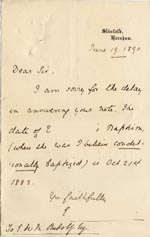 Slinfold,
Horsham.
June 19. 1890.
Dear Sir,
I am sorry for the delay
in answering your note. The
date of E 's Baptism
(when she was I believe condit-
ionally baptized) is Oct 21st
1882.
Yrs faithfully
E
To E. de M. Rudolf Esq.